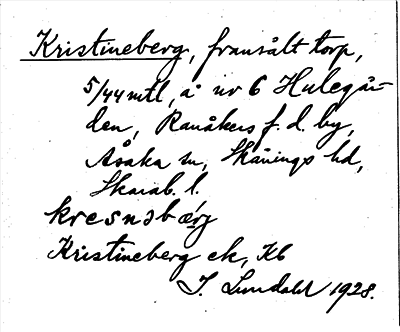 Kristineberg, fransålt torp,
5/44 mtl, å nr 6 Hulegår-
den, Ranåkers f. d. by,
Åsaka sn, Skånings hd,
Skarab. l.
kresnəbærj
Kristineberg ek, Kb
J. Lundahl 1928.